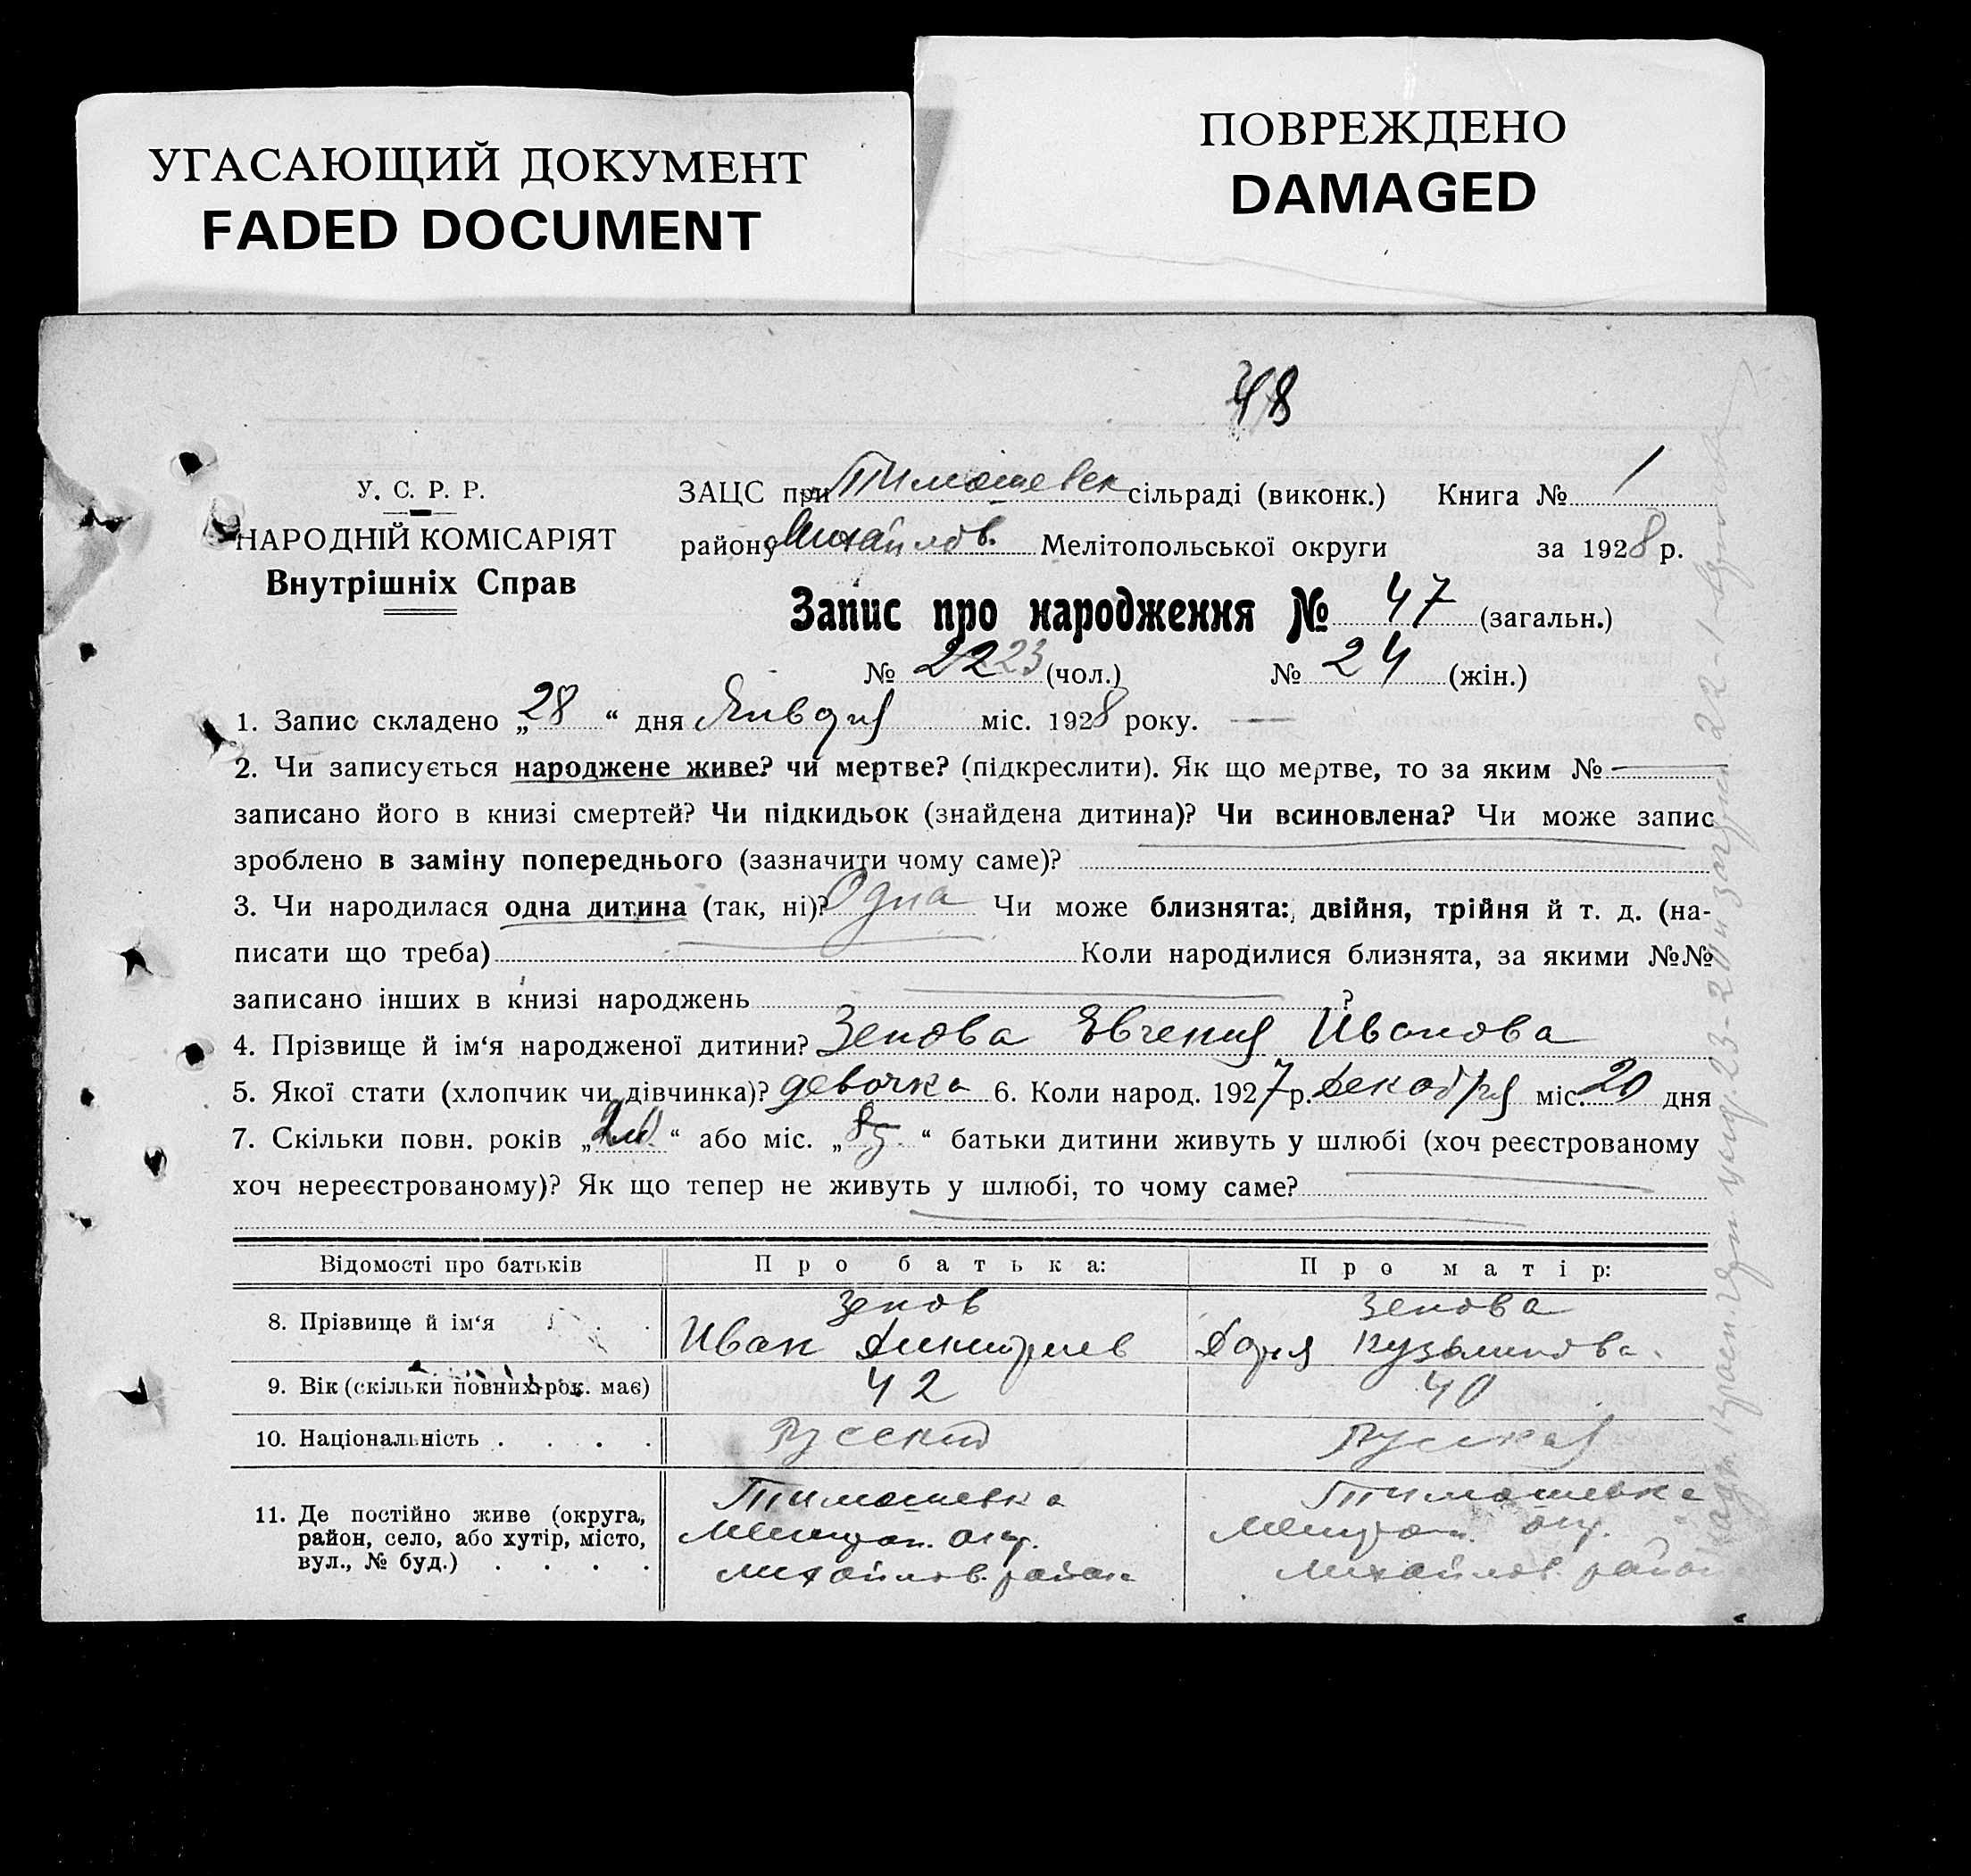 УГАСАЮЩИЙ ДОКУМЕНТ
FADED DOCUMENT
ПОВРЕЖДЕНО
DAMAGED
48
У. С. Р. Р.
НАРОДНІЙ КОМІСАРІЯТ
Внутрішніх Справ
ЗАЦС при Тимошевск сільраді (виконк.) Книга № 1
району Михайлов. Мелітопольської округи за 1928 р.
Запис про народження № 47 (загальн.)
№ 22 23 (чол.) № 24 (жін.)
1. Запис складено „28“ дня Января міс. 1928 року.
2. Чи записується народжене живе? чи мертве? (підкреслити). Як що мертве, то за яким №
записано його в книзі смертей? Чи підкидьок (знайдена дитина)? Чи всиновлена? Чи може запис
зроблено в заміну попереднього (зазначити чому саме)?
3. Чи народилася одна дитина (так, ні)? Одна Чи може близнята: двійня, трійня й т. д. (на-
писати що треба) Коли народилися близнята, за якими №№
записано інших в книзі народжень ?
4. Прізвище й ім‘я народженої дитини? Зенова Евгения Иванова
5. Якої стати (хлопчик чи дівчинка)? девочка 6. Коли народ. 1927 р. Декабря міс. 20 дня
7. Скільки повн. років „ “ або міс. „ “ батьки дитини живуть у шлюбі (хоч реєстрованому
хоч нереєстрованому)? Як що тепер не живуть у шлюбі, то чому саме?
Відомості про батьків Про батька: Про матір:
8. Прізвище й ім‘я Зенов Зенова
Иван Дмитриев Дарья Кузьминова.
9. Вік (скільки повних рок. має) 42 40
10. Національність . . . . Русский Русская
11. Де постійно живе (округа, район, село, або хутір, місто, вул., № буд.) . . . .
Тимошевка Тимошевка
Мелитоп. окр. Мелитоп. окр.
Михайлов. района Михайлов. район